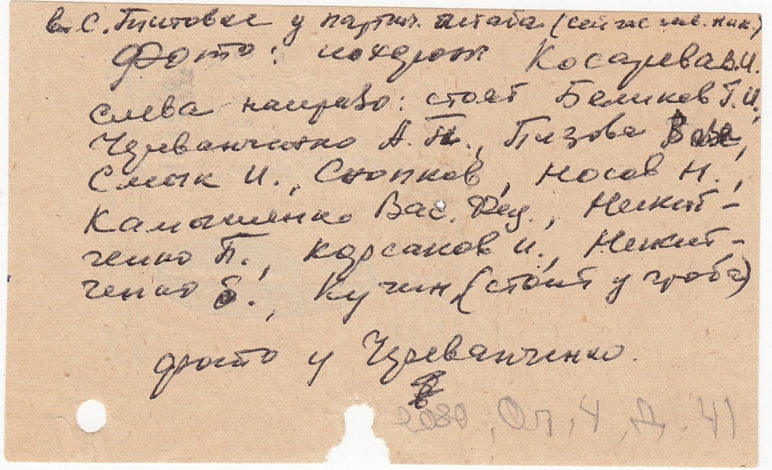 в С. Титовке у партиз. штаба (сейчас
Фото: похорон Косарева В.И.
слева направо: стоят Беликов Г.И.,
Череванченко А. П., Пизова
Смык И., Снопков, Носов Н.,
Камышенко Вас. Фед., Никит-
ченко П., Корсаков И., Никит-
ченко Б., Кучин, (стоит у гроба)
фото у Череванченко.
Оп, 4, Д. 41